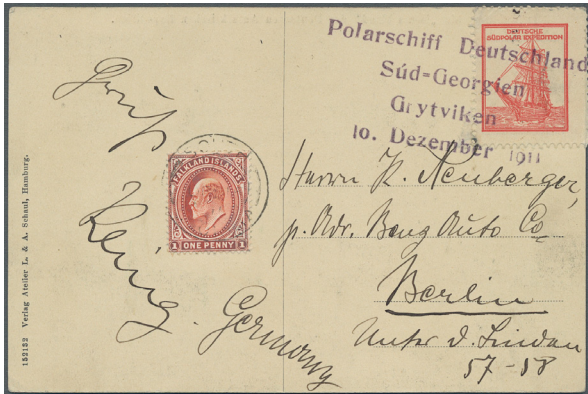 Polarschiff Deutschland
Süd=Georgien
Grytviken
10. Dezember 1911
DEUTSCHE
SÜDPOLAR EXPEDITION
FALKLAND ISLANDS
1 ONE PENNY 1
Gruß
Germany
Herrn K. Neuberger,
p. Adr. Benz Auto Co
Berlin
Unter d. Linden
57-58
152132 Verlag Atelier L. & A. Schaul, Hamburg.